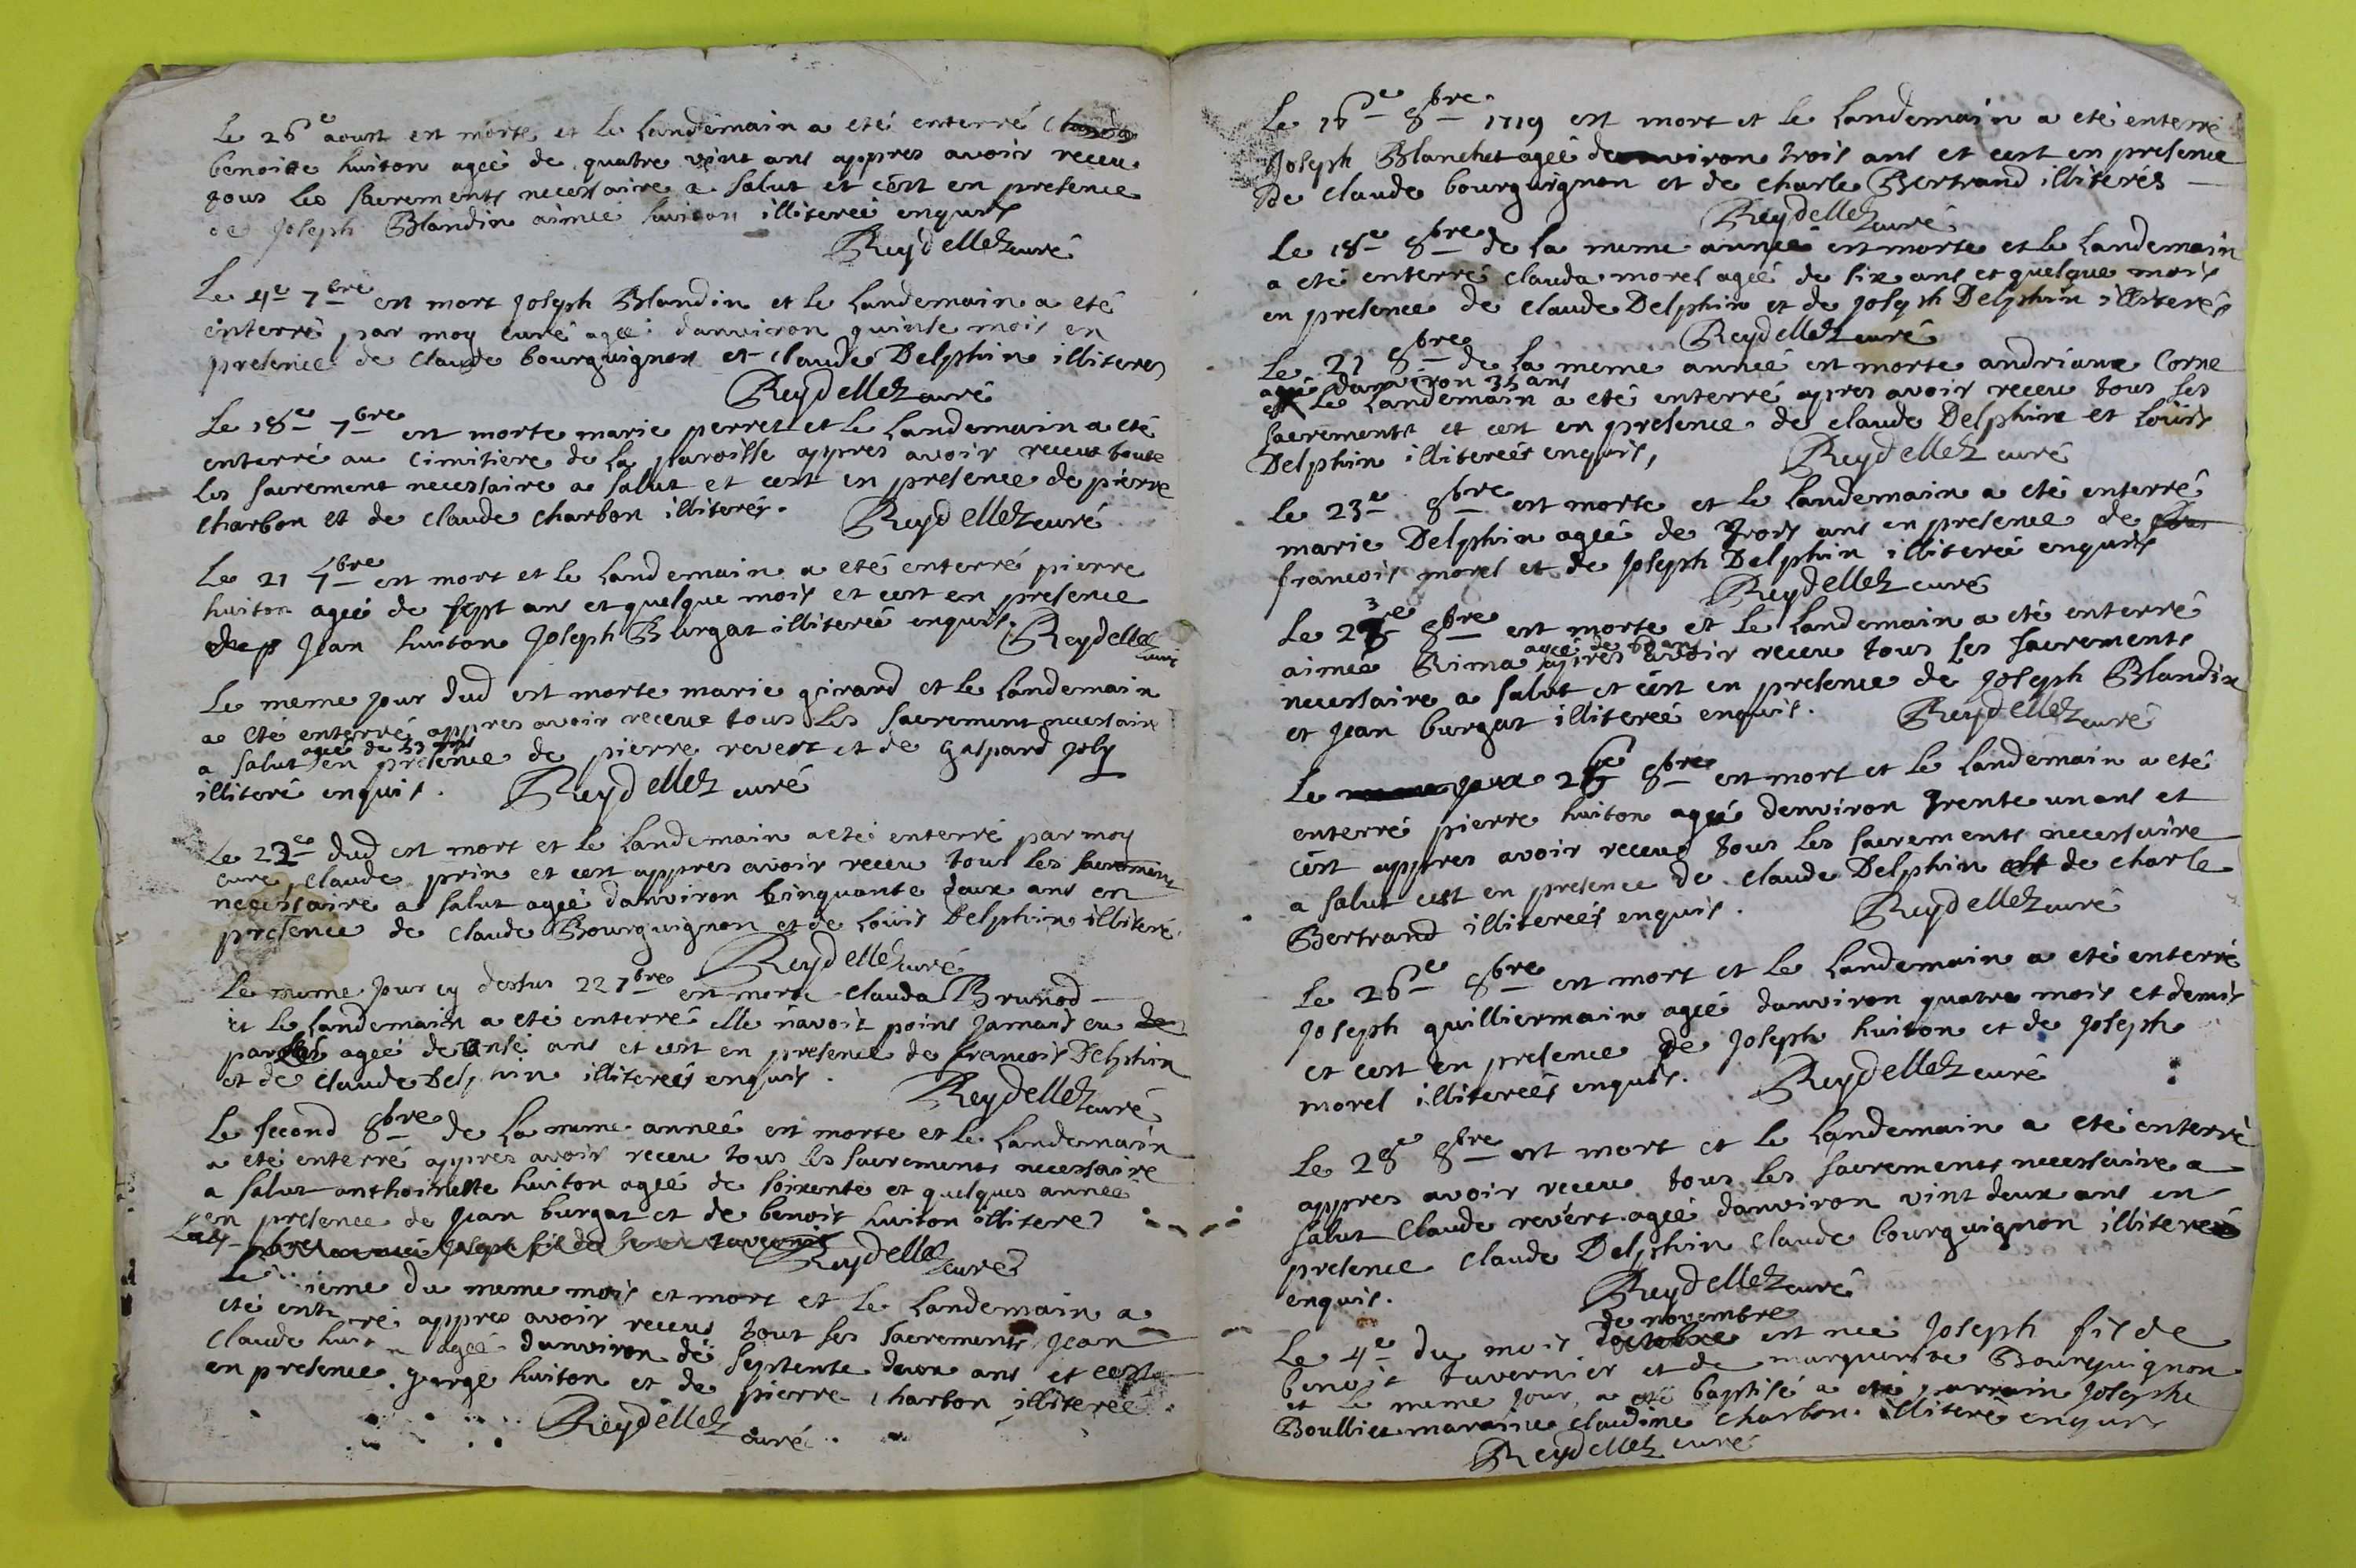 Le 26e aoust est morte et le landemain a eté enterré
benoite huiton ageé de quatre vint ans appres avoir receu
tous les sacrements necessaire a salut et cést en presence
de joseph Blandin aimeé huiton illitereé enquis
Reydellet curé
Le 4e 7bre est mort joseph Blandin et le landemain a eté
enterré par moy curé ageé danviron quinse mois en
presence de claude bourguignon et claude Delphin illiteres
Reydellet curé
Le 18e 7bre est morte marie perret et le landemain a eté
enterré au cimitiere de la paroisse appres avoir receu toute
les sacrement necessaire a salut et cest en presence de pierre
charbon et de claude charbon illiterés.
Reydellet curé
Le 21 7bre est mort et le landemain a eté enterré pierre
huiton ageé de sept ans et quelque mois et cest en presence
de jean huiton joseph Burgat illitereé enquis.
Reydellet curé
Le meme jour dud est morte marie girard et le landemain
a eté enterré appres avoir receue tous les sacrement necessaire
a salut ageé de 53 ans en presence de pierre revert et de gaspard joly
illiteré enquis.
Reydellet curé
Le 22e dud est mort et le landemain a eté enterré par moy
curé claude prin et cest appres avoir receu tous les sacrement
necessaire a salut ageé danviron cinquante deux ans en
presence de claude Bourguignon et de Loüis Delphin illiteré
Reydellet curé
Le meme jour cy dessus 22 7bre est morte clauda Brunod
et le landemain a eté enterré elle n'avoit point jamais eu de
paroles ageé de onse ans et cest en presence de francois Delphin
et de claude Delphin illitereés enquis.
Reydellet curé
Le second 8bre de la meme anneé est morte et le landemain
a eté enterré appres avoir receu tous les sacrements necessaire
a salut anthoinette huiton ageé de soixente et quelques anneé
en presence de jean burgat et de benoit huiton illiteres
Reydellet curé
Le ieme du meme mois et mort et le landemain a
eté enterré appres avoir receus tout ses sacrements jean
claude huiton ageé danviron de septente deux ans et cest
en presence george huiton et de pierre charbon illitereé
Reydellet curé
Le 16e 8bre 1719 est mort et le landemain a eté enterré
joseph Blanchet ageé denviron trois ans et cest en presence
de claude bourguignon et de charle Bertrand illiterés
Reydellet curé
Le 18e 8bre de la meme anneé est morte et le landemain
a eté enterré clauda morel ageé de six ans et quelque mois
en presence de claude Delphin et de joseph Delphin illiterés
Reydellet curé
Le 21 8bre de la meme anneé est morte andriane Corne
ageé danviron 35 ans
et le landemain a eté enterré apres avoir receu tous ses
sacrements et cest en presence de claude Delphin et Loüis
Delphin illitereés enquis,
Reydellet curé
Le 23e 8bre est morte et le landemain a eté enterré
marie Delphin ageé de trois ans en presence de
francois morel et de joseph Delphin illitereé enquis
Reydellet curé
Le 23e 8bre est morte et le landemain a eté enterré
aimeé Rima ageé de 60 ans apres avoir receu tous les sacrements
necessaire a salut et cést en presence de joseph Blandin
et jean burgat illitereé enquis.
Reydellet curé
Le 25e 8bre est mort et le landemain a eté
enterré pierre huiton ageé denviron trente un ans et
cést appres avoir receus tous les sacrements necessaire
a salut cest en presence de claude Delphin et de charle
Bertrand illitereés enquis.
Reydellet curé
Le 26e 8bre est mort et le landemain a eté enterré
joseph guilliermain ageé danviron quatre mois et demis
et cest en presence de joseph huiton et de joseph
morel illitereés enquis.
Reydellet curé
Le 28e 8bre est mort et le landemain a eté enterré
appres avoir receu tous les sacrements necessaire a
salut Claude revért ageé danviron vint deux ans en
presence claude Delphin claude bourguignon illitereé
enquis.
Reydellet curé
de novembre
Le 4e du mois doctobre est neé joseph fis de
benoit tavernier et de marguerite Bourguignon
et le meme jour a eté baptisé a eté parrain josephe
Boullier maraine claudine charbon illiteré enquis
Reydellet curé